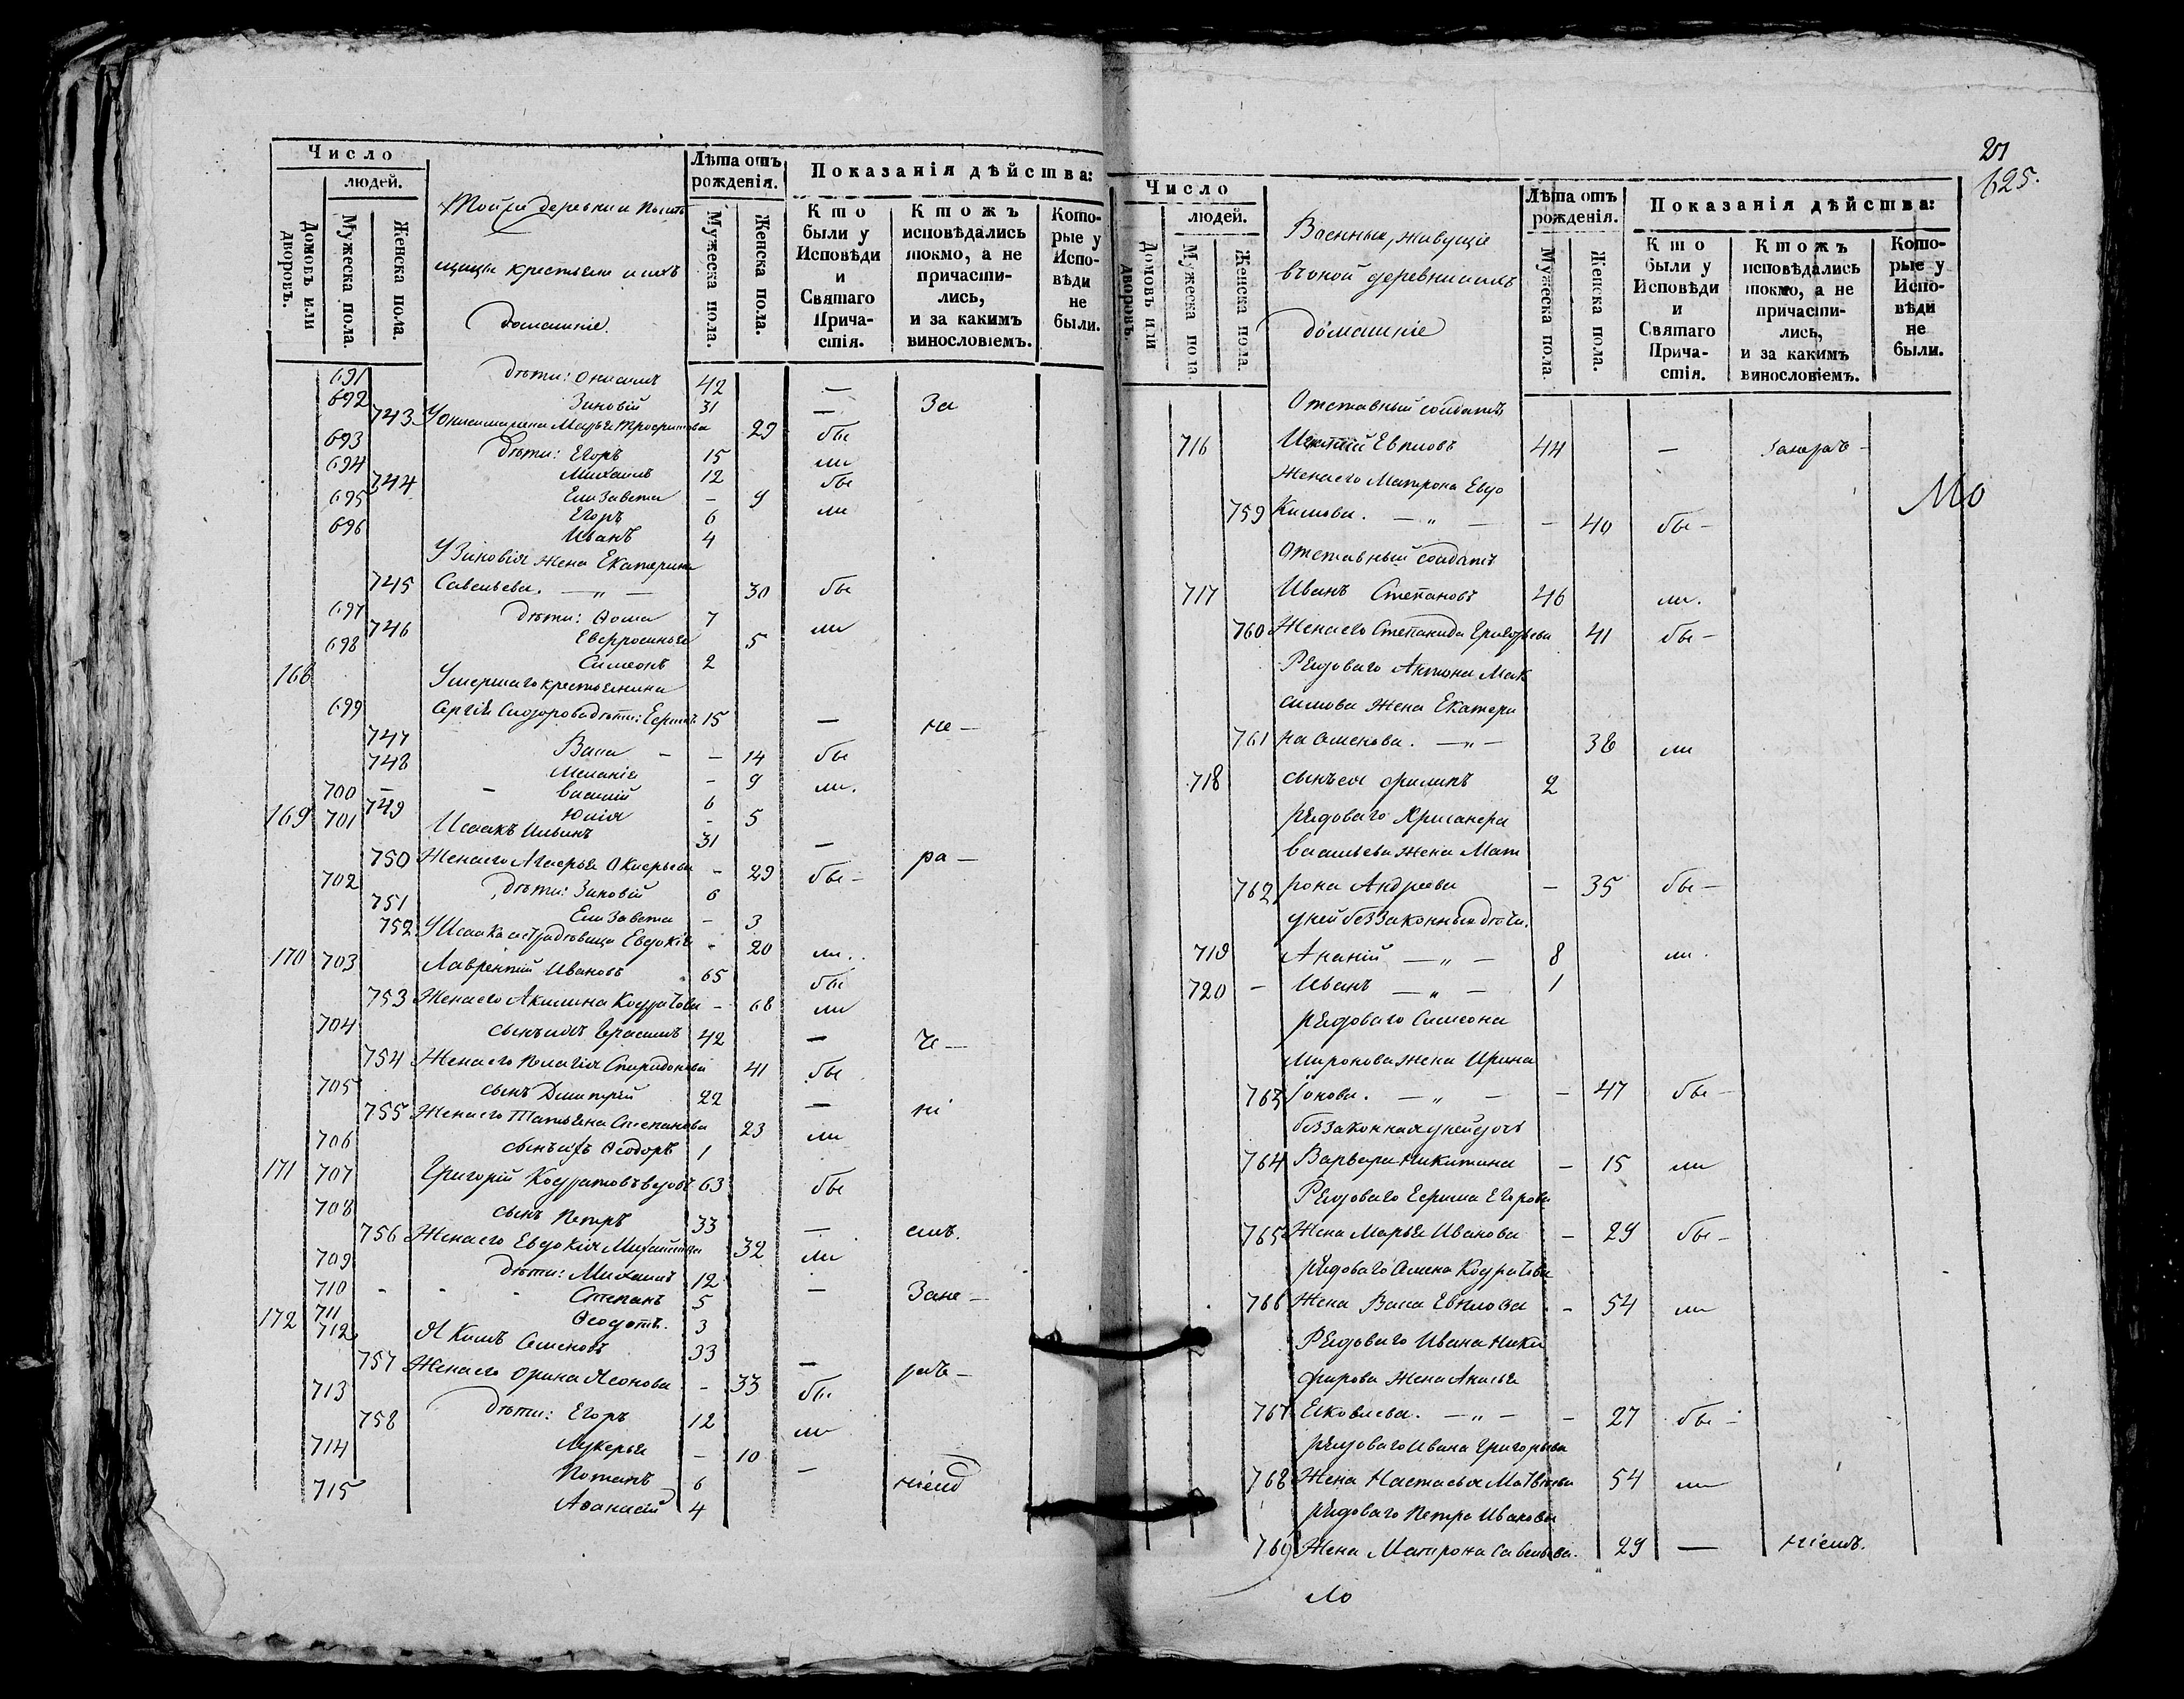 Число
людей.
Домовъ или дворовъ.
Мужеска пола.
Женска пола.
Той же деревни помѣ
щицы крестьяне и ихъ
домашніе.
Лѣта отъ рожденія.
Мужеска пола.
Женска пола.
Показанія дѣйства:
Кто были у Исповѣди и Святаго Причастія.
Ктожъ исповѣдались токмо, а не причастились, и за какимъ винословіемъ.
Которые у Исповѣди не были.
691 дѣти: Онисимъ 42 —
692 Зиновій 31 — За
743 У Онисима жена Марья Трофимова 29 бы
693 Дѣти: Егоръ 15 ли
694 Михаилъ 12 бы
744 Елизавета - 9 ли
695 Егоръ 6
696 Иванъ 4
У Зиновія жена Екатерина
745 Савельева. — „ — 30 бы
697 дѣти: Ѳома 7
746 Евфросинья 5 ли
698 Симеонъ 2
168 Умершаго крестьянина
699 Сергія Сидорова дѣти: Ефимъ 15 — не —
747 Васа - - 14 бы
748 Меланія - 9 ли.
700 - Василій 6
749 Юлія - 5
169 701 Исаакъ Ильинъ 31 — ра —
750 Жена его Агафья - 29 бы -
702 дѣти: Зиновій 6
751 Елизавета - 3
752 У Исаака сестра дѣвица Евдокія - 20 ли.
170 703 Лаврентій Ивановъ 65 бы
753 Жена его Акилина Кондратова - 68 ли
704 сынъ ихъ Герасимъ 42 — че —
754 Жена его Пелагія Спиридонова 41 бы
705 сынъ Димитрій 22 — ні
755 Жена его Татьяна Степанова 23 ли
706 сынъ ихъ Ѳеодоръ 1
171 707 Григорій Кондратовъ вдовъ 63 бы
708 сынъ Петръ 33 — емъ.
756 Жена его Евдокія Михайлова 32 ли
709 дѣти: Михаилъ 12 —
710 - Степанъ 5 Зане —
711 Ѳеодотъ. 3
172 712 Якимъ Семеновъ 33 —
757 Жена его Орина Леонова - 33 бы раче —
713 дѣти: Егоръ 12 ли
758 Лукерья - 10
714 Потапъ 6 — ніемъ
715 Аѳанасій 4
21
625.
Число
людей.
Домовъ или дворовъ.
Мужеска пола.
Женска пола.
Военные, живущіе
въ оной деревни и ихъ
домашніе
Лѣта отъ рожденія.
Мужеска пола.
Женска пола.
Показанія дѣйства:
Кто были у Исповѣди и Святаго Причастія.
Ктожъ исповѣдались токмо, а не причастились, и за какимъ винословіемъ.
Которые у Исповѣди не были.
Отставный солдатъ
716 Евпловъ 44 — Занерач -
Жена его Матрона Евдо
759 кимова. — „ — - 40 бы -
Отставный солдатъ
717 Иванъ Степановъ 46 ли.
760 Жена его Степанида Григорьева 41 бы -
Рядоваго Антона Мак
симова жена Екатери
761 на Семенова. — „ — 38 ли
718 сынъ ея Филипъ 2
рядоваго Хрисанфа
Васильева жена Мат
762 рона Андреева - 35 бы -
у ней беззаконныя дѣти.
719 Ананій — „ — 8 ли.
720 - Иванъ — „ — 1
рядоваго Симеона
Миронова жена Ирина
763 Іонова. — „ — - 47 бы -
беззаконная у ней дочь
764 Варвара Никитина - 15 ли
Рядоваго Ефима Егорова
765 Жена Марья Иванова - 29 бы -
рядоваго Семена Кондратова
766 Жена Васа Евплова - 54 ли
Рядоваго Ивана Ники
форова жена Анисья
767 Яковлева. — „ — - 27 бы -
рядоваго Ивана Григорьева
768 Жена Настасья Матвѣева 54 ли
рядоваго Петра Иванова
769 Жена Матрона Савельева. 29 — ніемъ.
Мо
Ло